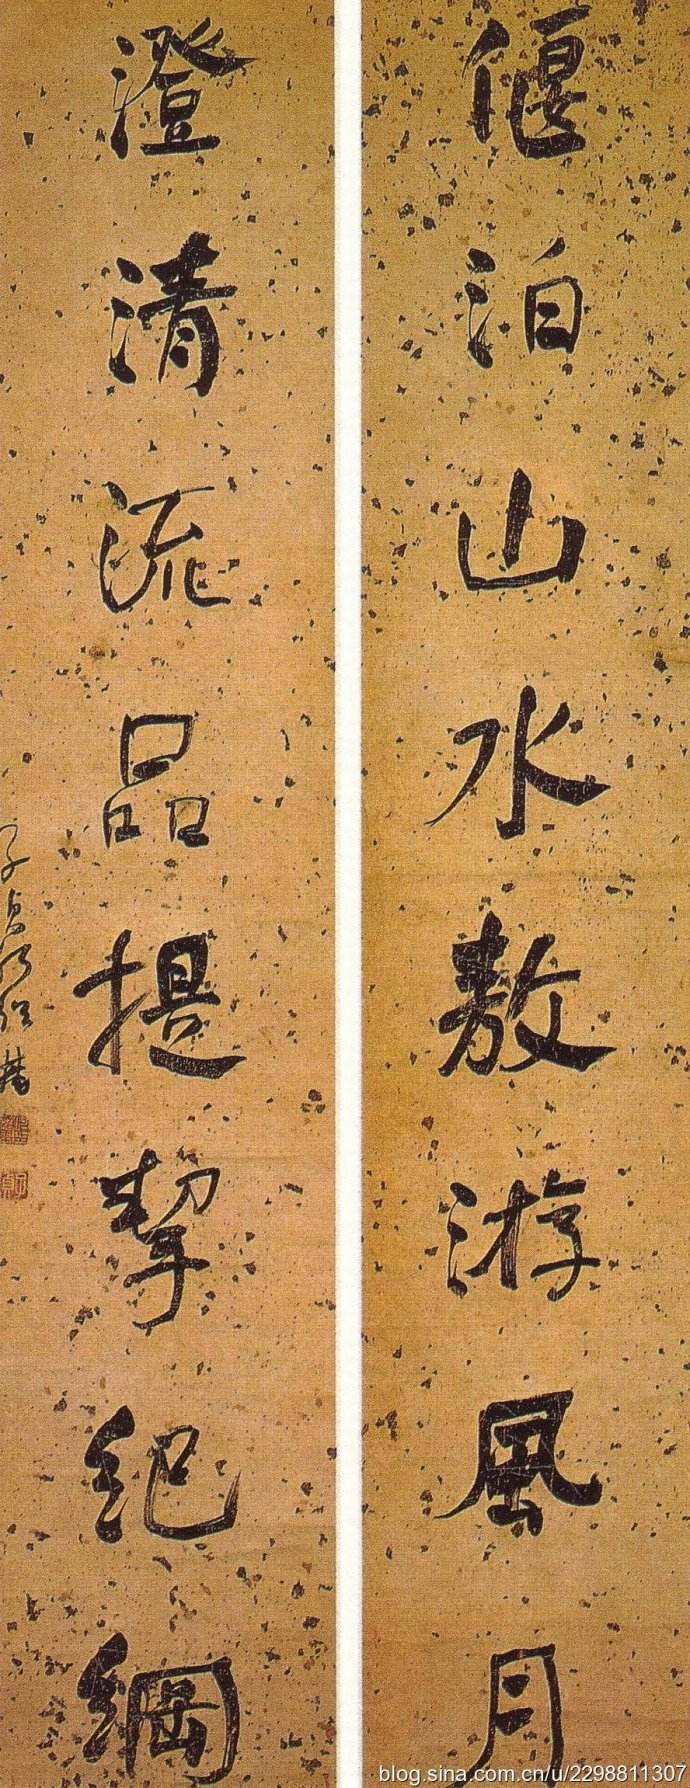 偃泊山水敖游風月
澄清流品提挈紀綱
子貞何紹基
blog.sina.com.cn/u/2298811307